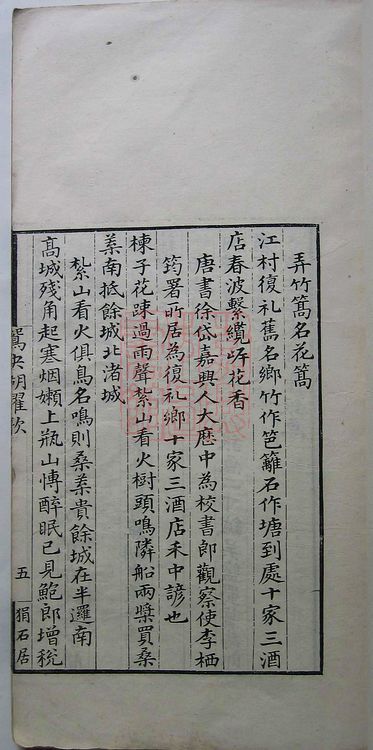 弄竹篙名花篙
江村復礼舊名鄉竹作笆籬石作塘到處十家三酒
店春波繫纜㟁花香
唐書徐岱嘉興人大厯中為校書郎觀察使李栖
筠署所居為復礼鄉十家三酒店禾中諺也
楝子花踈過雨聲紮山看火樹頭鳴隣船兩槳買桑
葉南抵餘城北渚城
紮山看火俱鳥名鳴則桑葉貴餘城在半邏南
高城殘角起寒烟嬾上瓶山慱醉眠已見鮑郎增稅
鴛央胡櫂欤
五
狷石居